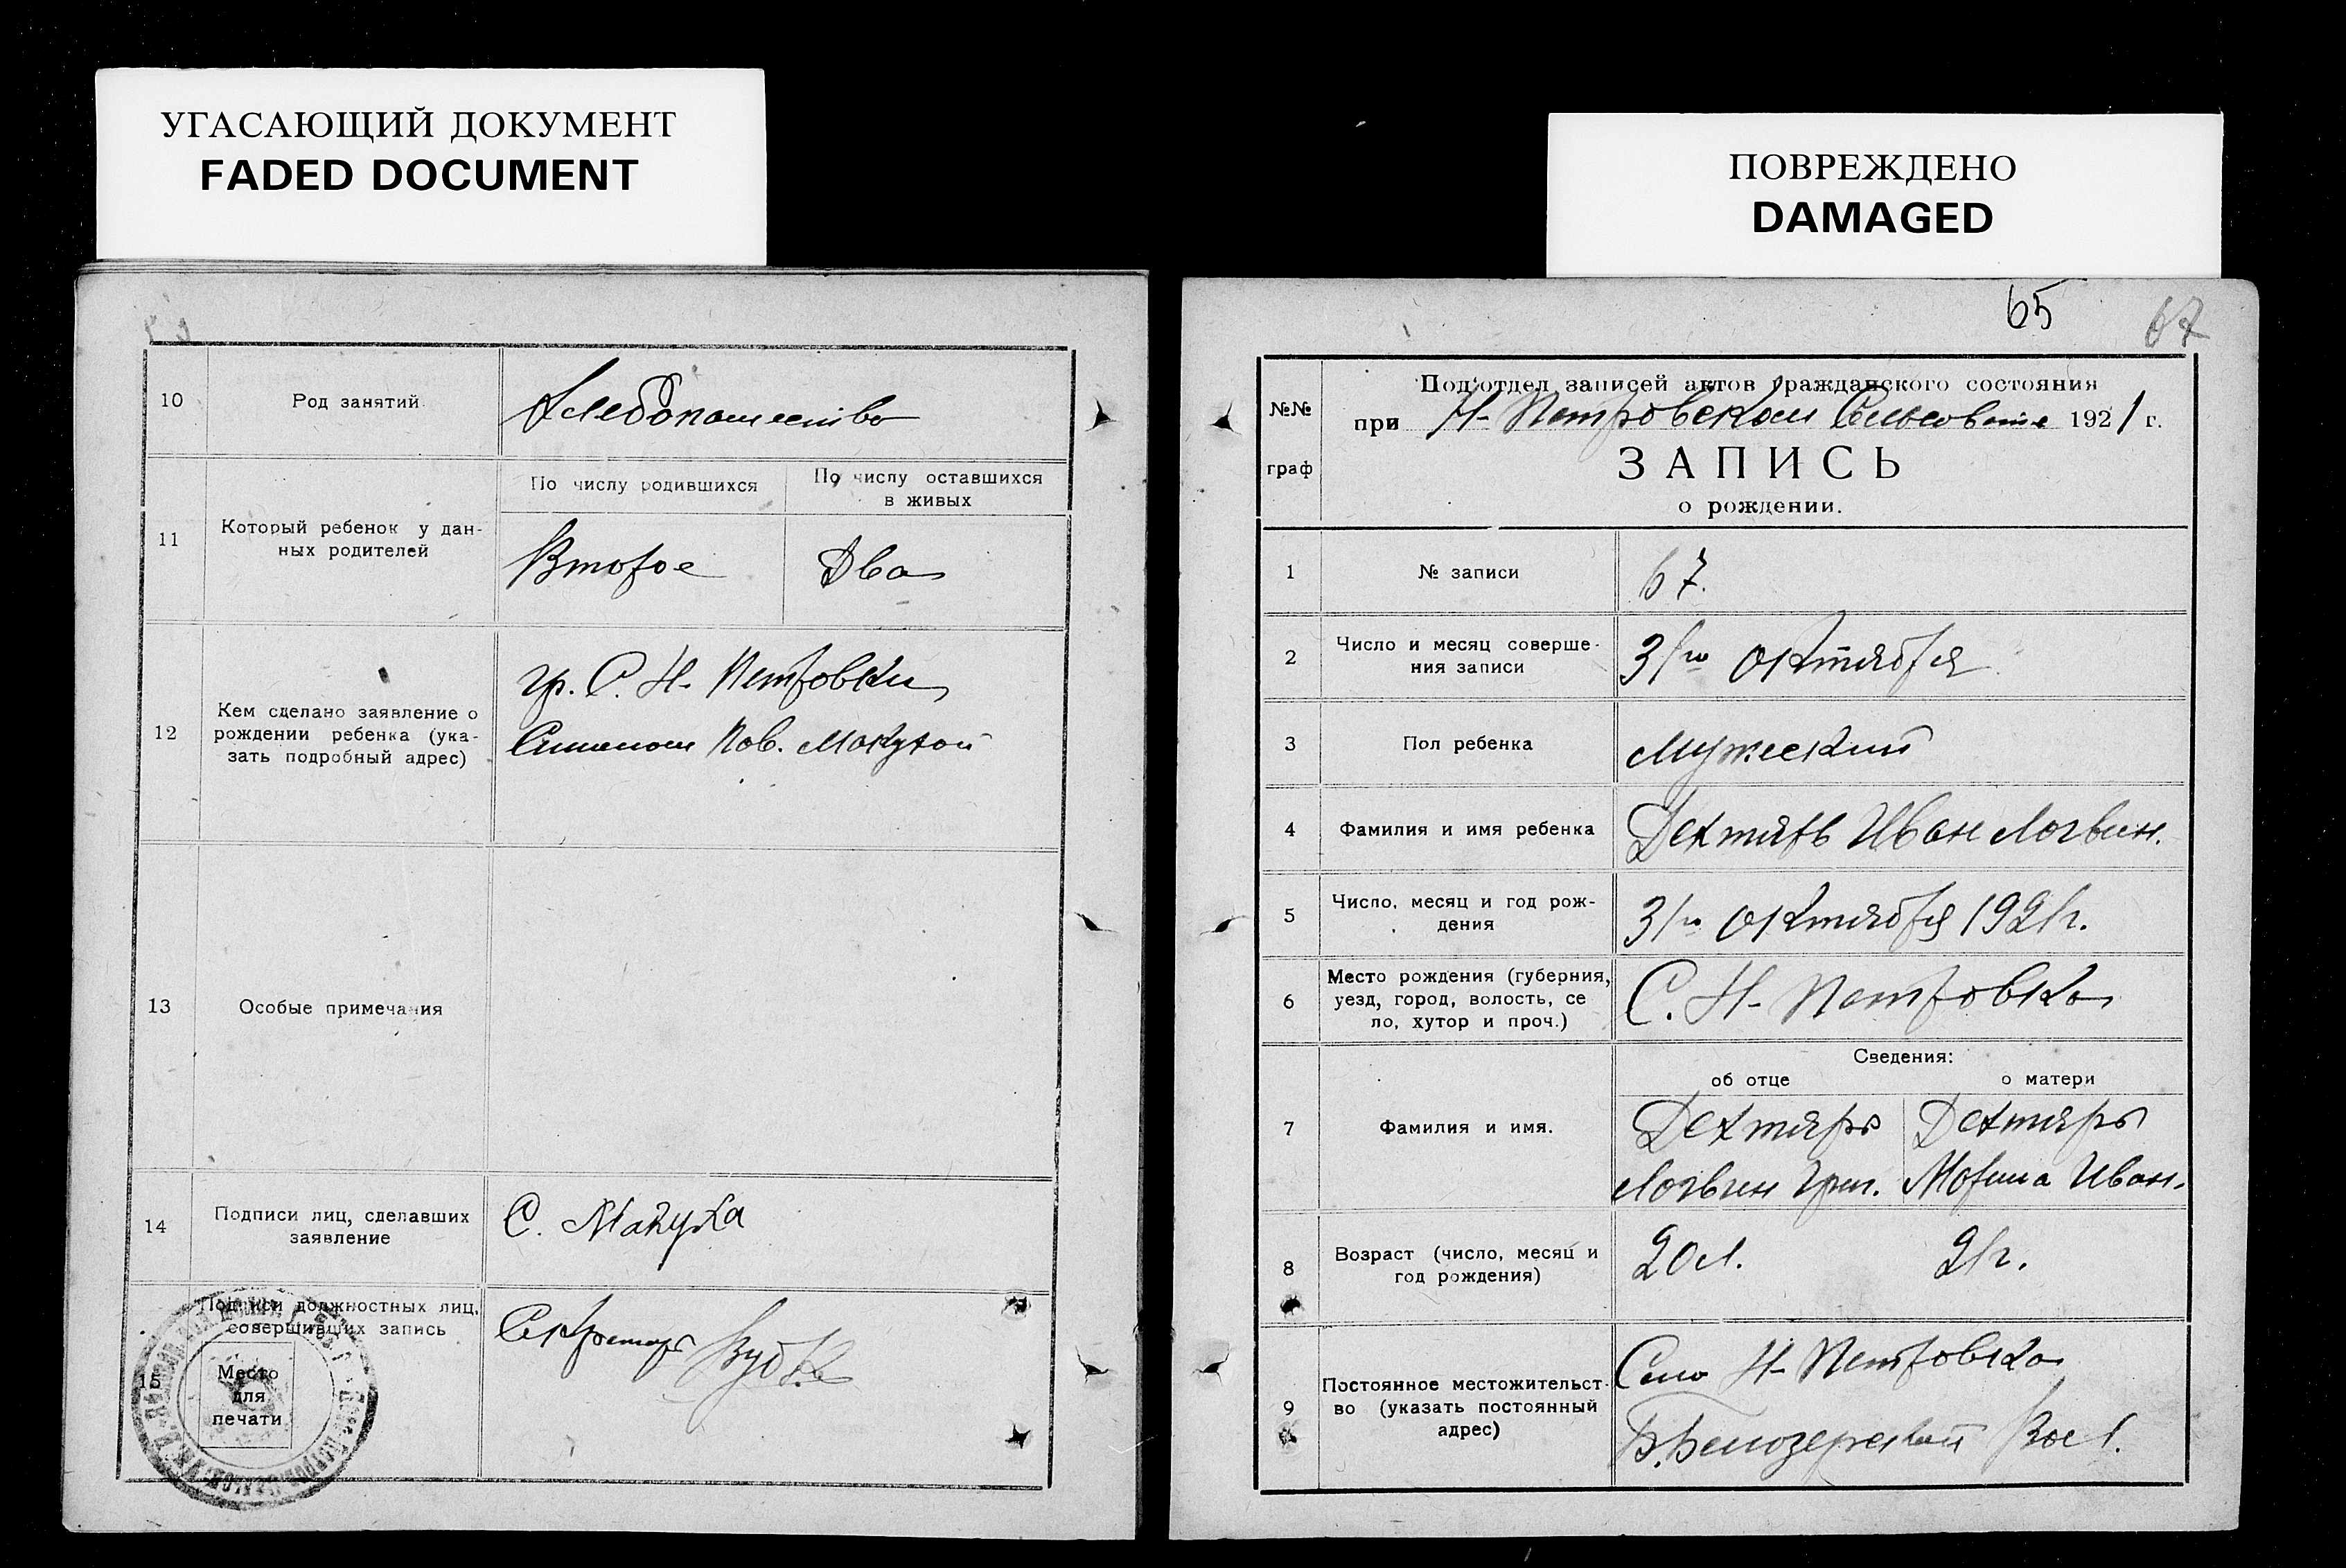 УГАСАЮЩИЙ ДОКУМЕНТ
FADED DOCUMENT
10
Род занятий
Хлебопашество
11
Который ребенок у дан-
ных родителей
По числу родившихся
По числу оставшихся
в живых
Второе
Два
12
Кем сделано заявление о
рождении ребенка (ука-
зать подробный адрес)
гр. С. Н- Петровки
Симоном Пав. Макухой
13
Особые примечания
14
Подписи лиц, сделавших
заявление
С. Макуха
15
Подписи должностных лиц,
совершивших запись
Место
для
печати
Секретарь
ПОВРЕЖДЕНО
DAMAGED
65
67
№№
граф
Под'отдел записей актов гражданского состояния
при Н- Петровском Сельсовете 1921 г.
ЗАПИСЬ
о рождении.
1
№ записи
67.
2
Число и месяц соверше-
ния записи
31го октября
3
Пол ребенка
Мужеский
4
Фамилия и имя ребенка
Дехтярь Иван Логвин.
5
Число, месяц и год рож-
дения
31го октября 1921г.
6
Место рождения (губерния,
уезд, город, волость, се
ло, хутор и проч.)
С. Н- Петровка
Сведения:
об отце
о матери
7
Фамилия и имя.
Дехтярь
Логвин Григ.
Дехтярь
Мариа Иван.
8
Возраст (число, месяц и
год рождения)
20л.
21г.
9
Постоянное местожительст-
во (указать постоянный
адрес)
Село Н- Петровка
Б. Белозерской Вол.